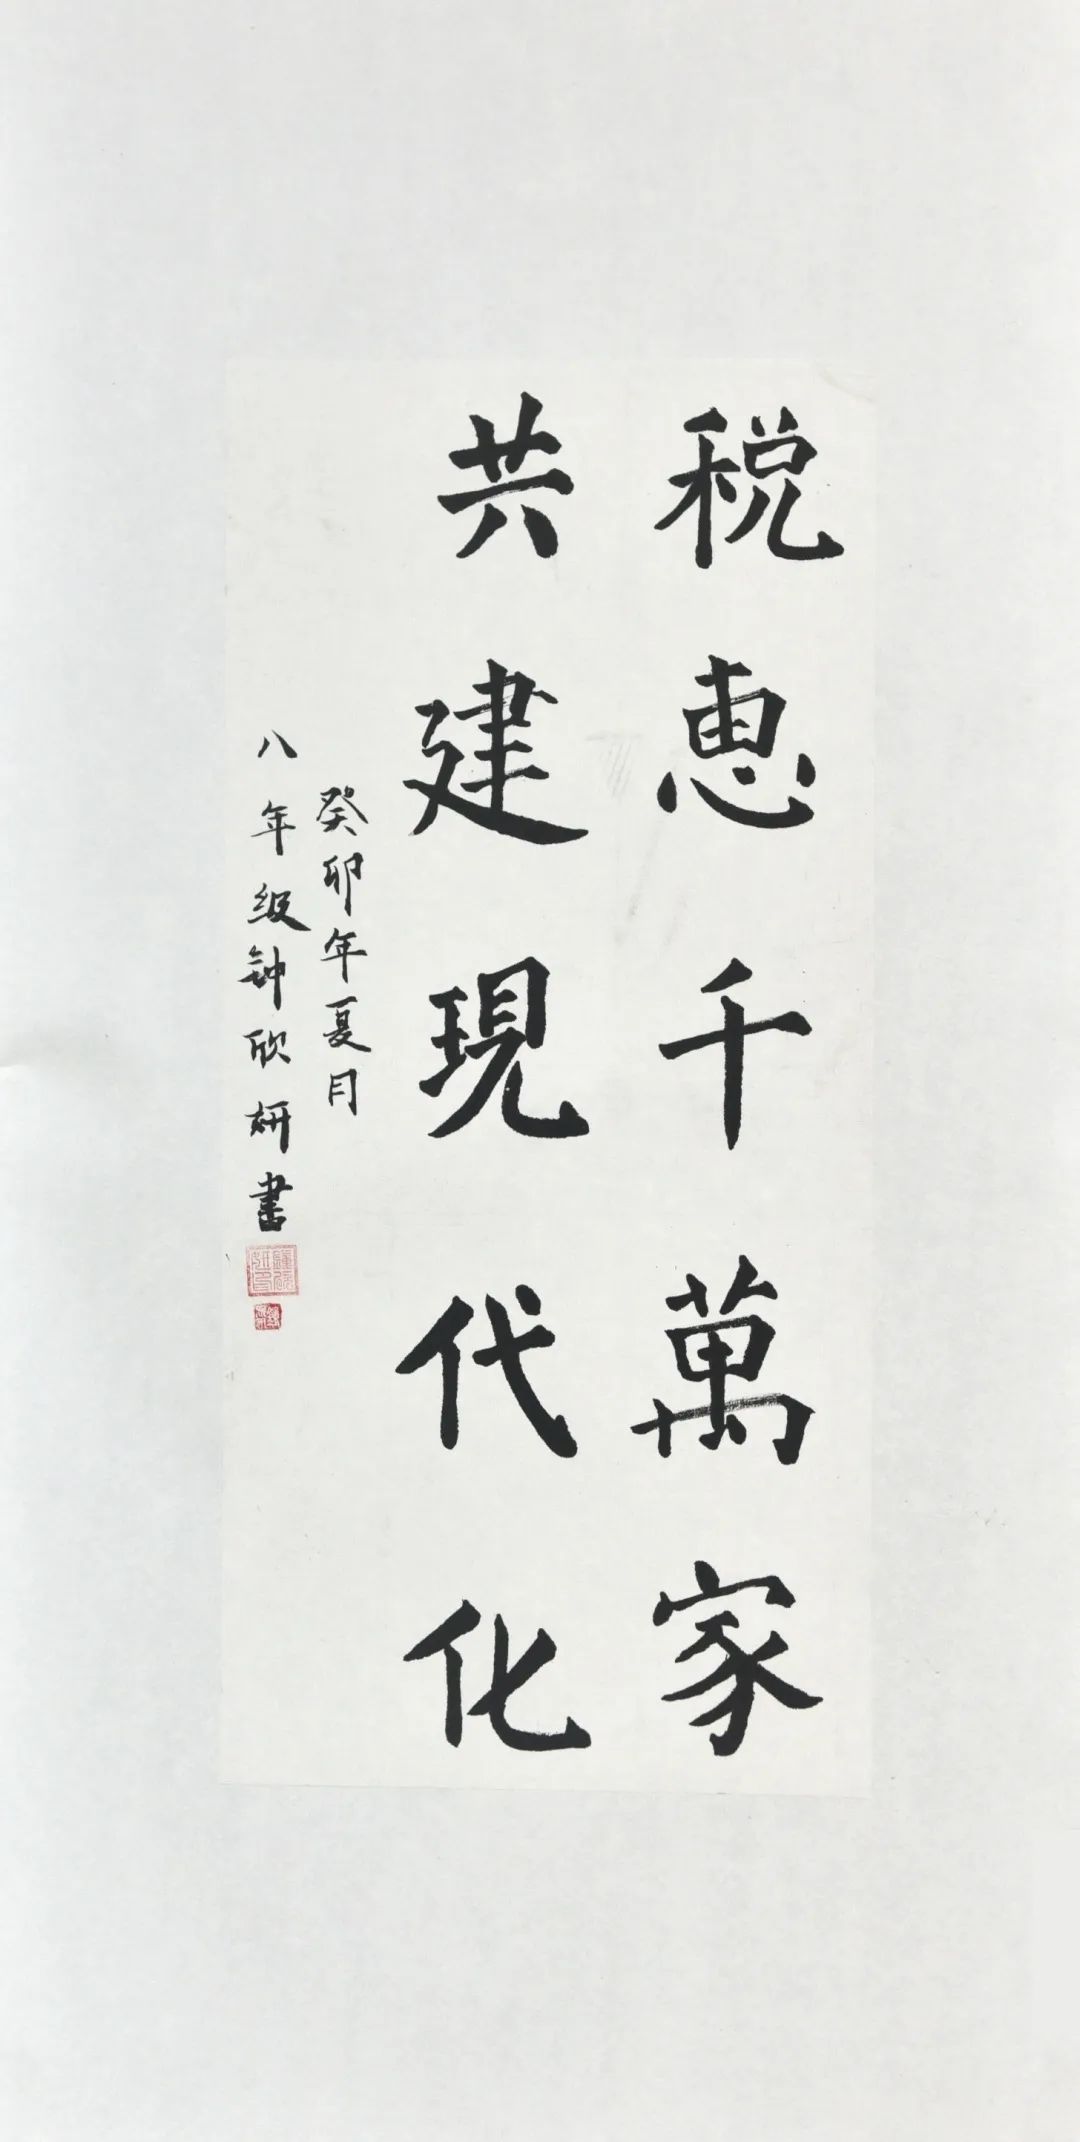 税惠千萬家
共建現代化
癸卯年夏月
八年级钟欣妍書